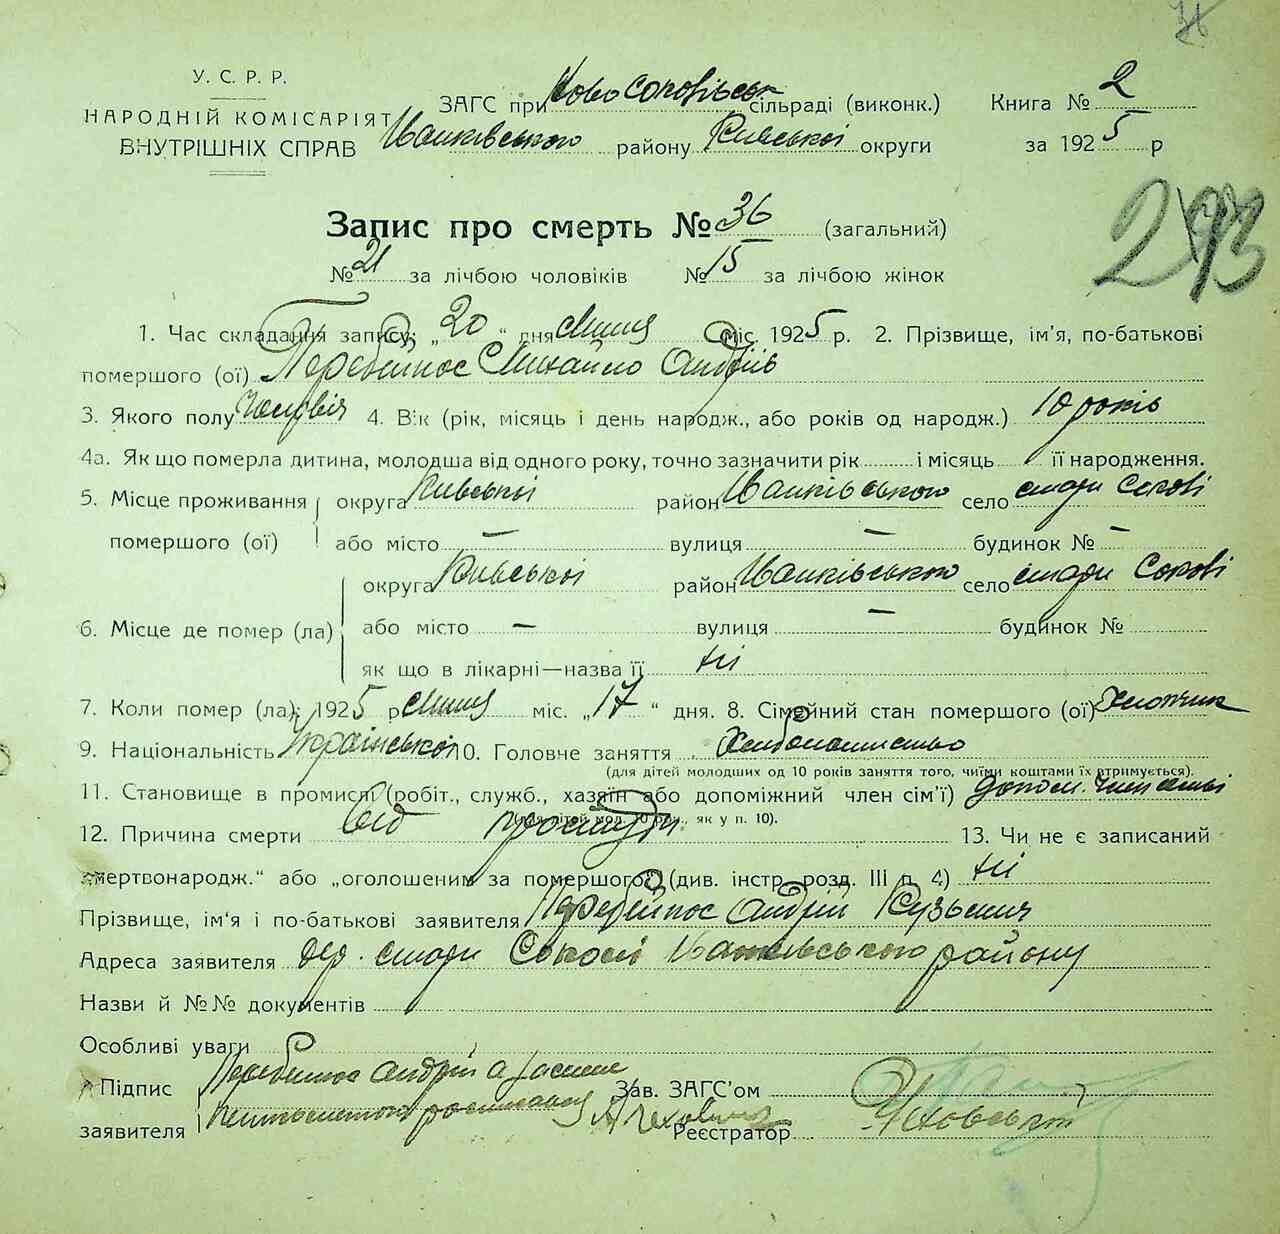 У. С. Р. Р.
НАРОДНІЙ КОМІСАРІЯТ
ВНУТРІШНІХ СПРАВ
ЗАГС при Ново Соковівськ сільраді (виконк.)
Іванківського району Київської округи
Книга № 2
за 1925 р
293
Запис про смерть № 36 (загальний)
№ 21 за лічбою чоловіків № 15 за лічбою жінок
1. Час складання запису: „20“ дня міс. 1925 р. 2. Прізвище, ім'я, по-батькові
помершого (ої) Перебейнос Михайло Андріїв
3. Якого полу 4. Вік (рік, місяць і день народж., або років од народж.) 10 років
4а. Як що померла дитина, молодша від одного року, точно зазначити рік і місяць її народження.
5. Місце проживання округа Київської район Іванківського село стари Сокові
помершого (ої) або місто — вулиця — будинок № —
округа Київської район Іванківського село стари Сокові
6. Місце де помер (ла) або місто — вулиця — будинок №
як що в лікарні—назва її ні
7. Коли помер (ла): 1925 р міс. „17“ дня. 8. Сімейний стан помершого (ої)
9. Національність Української 10. Головне заняття Хлібопашество
(для дітей молодших од 10 років заняття того, чиїми коштами їх втримується).
11. Становище в промислі (робіт., служб., хазяїн або допоміжний член сім'ї) допом. член семьі
(для дітей мол. 10 рок., як у п. 10).
12. Причина смерти від простуди 13. Чи не є записаний
„мертвонародж.“ або „оголошеним за помершого“ (див. інстр. розд. III п. 4) ні
Прізвище, ім'я і по-батькові заявителя Перебейнос Андрій Кузьмич
Адреса заявителя дер. стари Сокові Іванківського району
Назви й №№ документів
Особливі уваги
Підпис Перебейнос Андрій а за
заявителя
Зав. ЗАГС'ом
Реєстратор